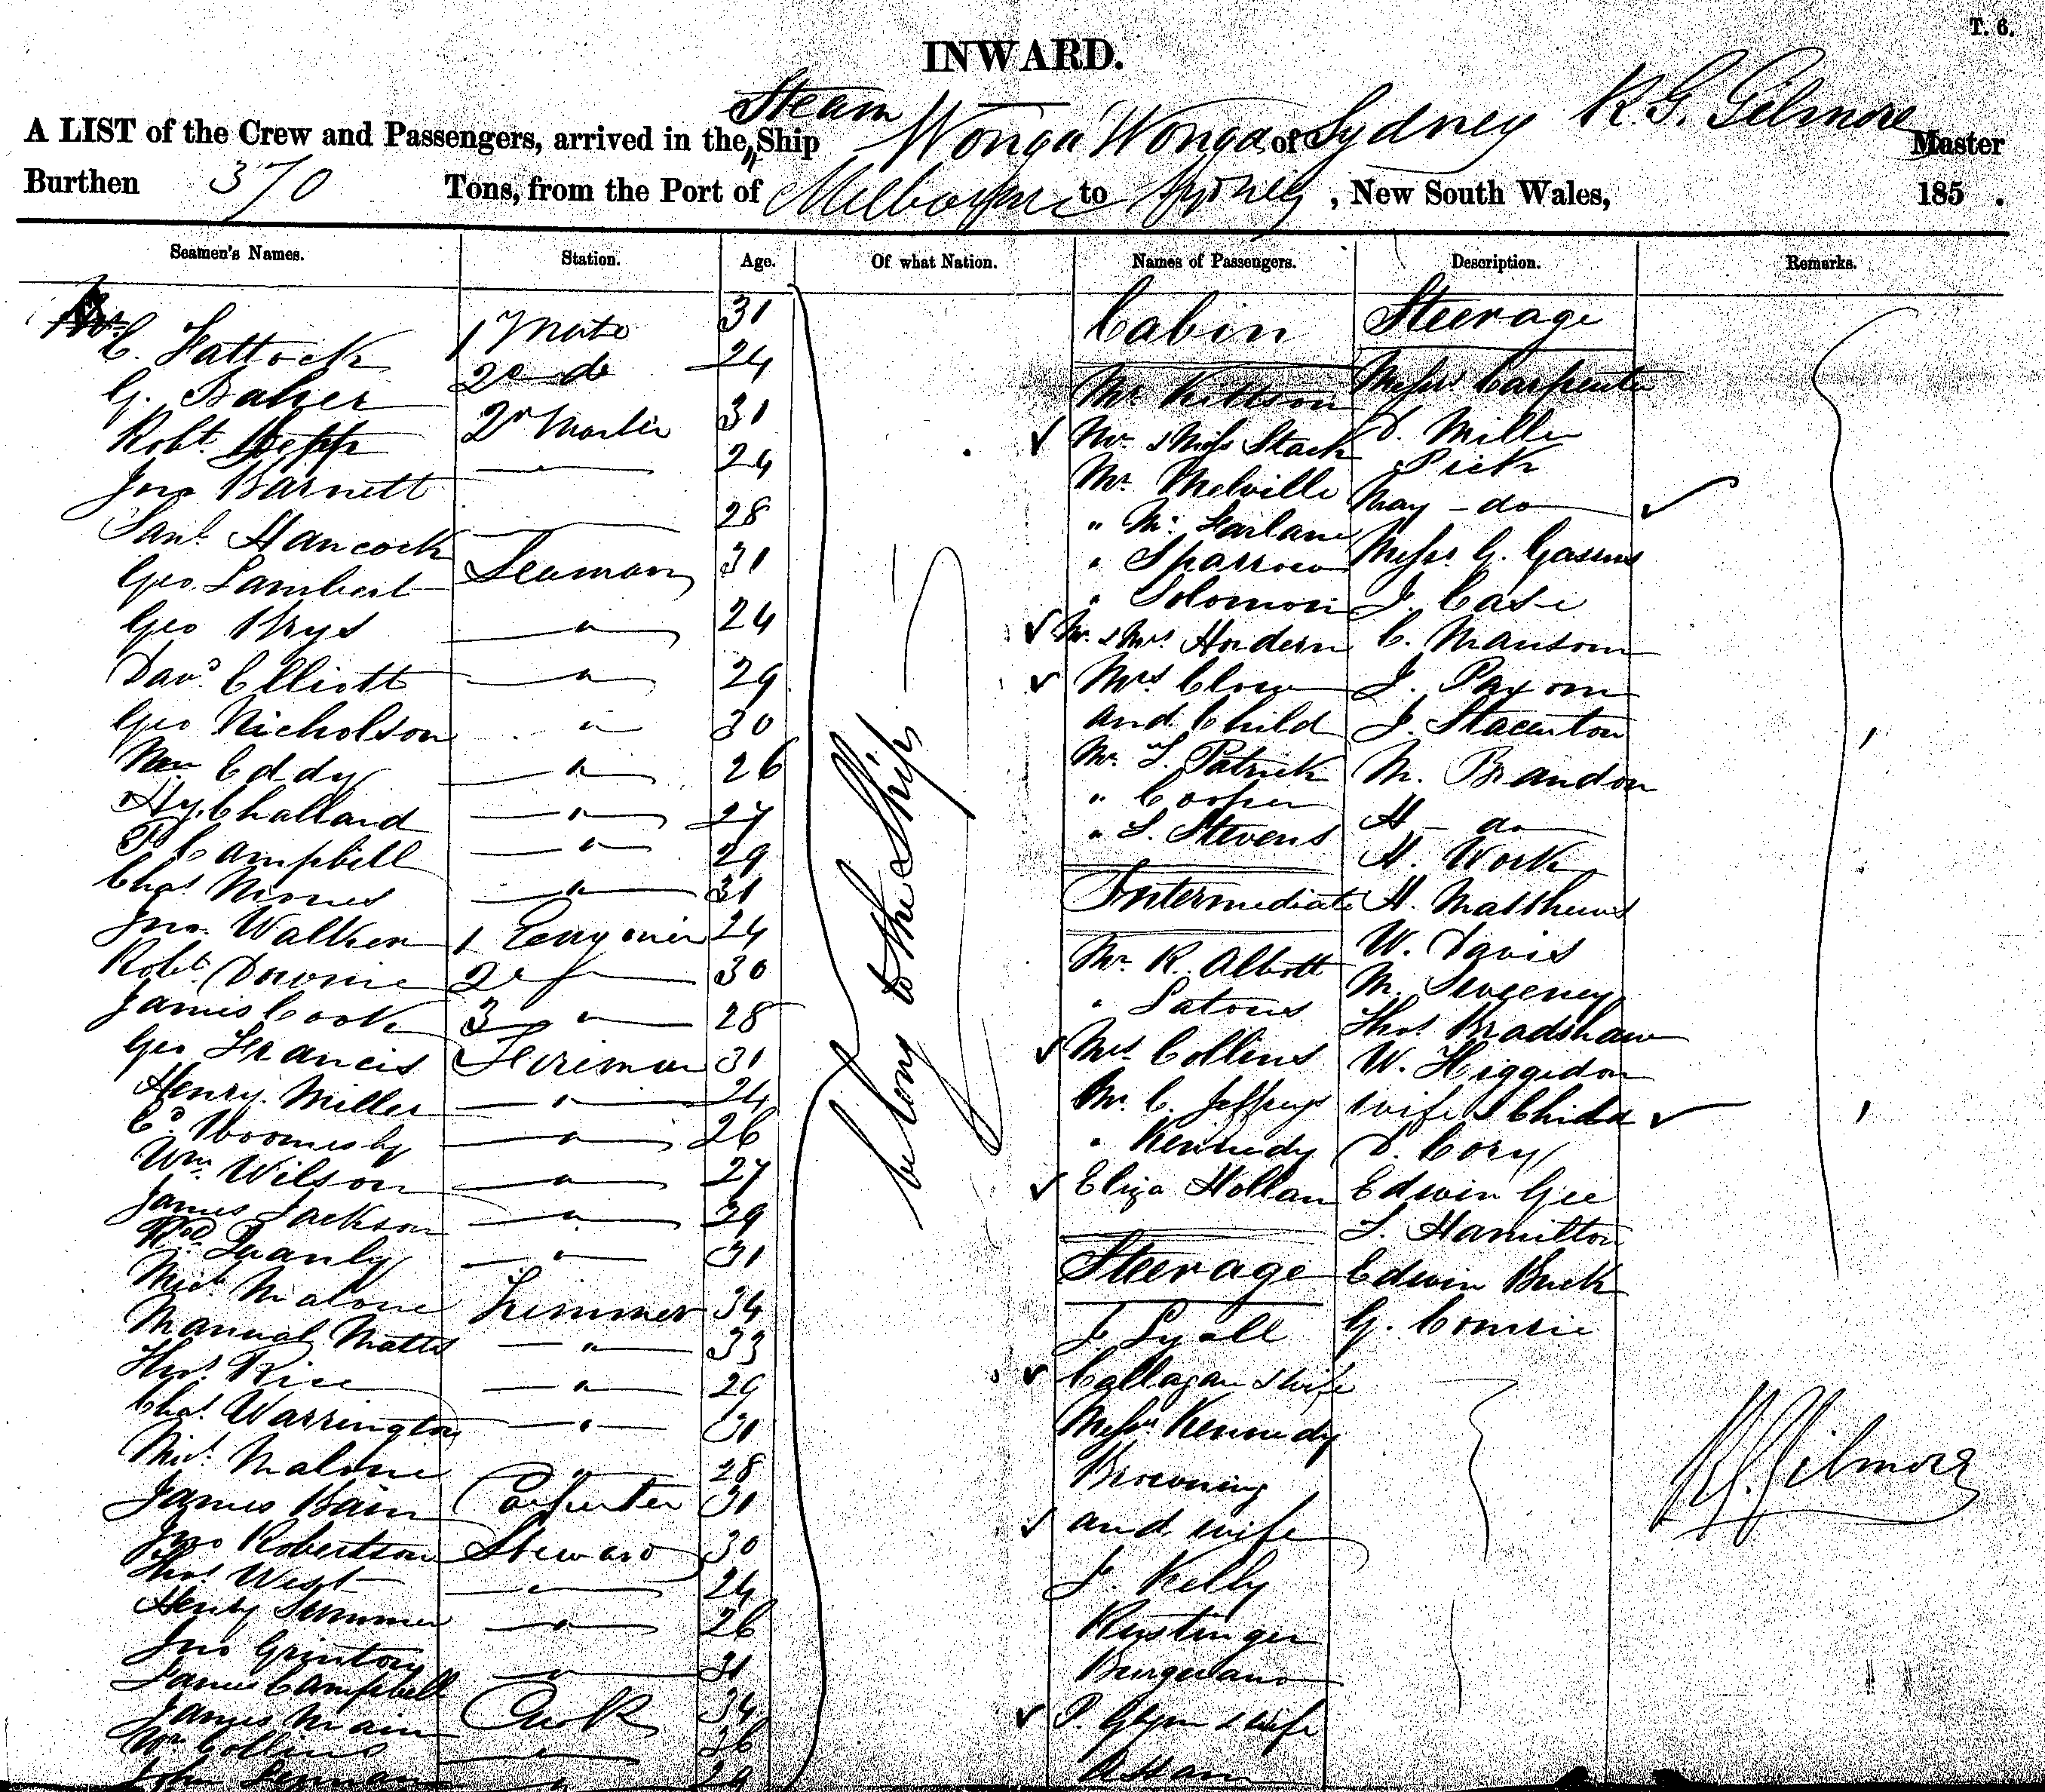 T. 6.
INWARD.
A LIST of the Crew and Passengers, arrived in the Steam Ship Wonga Wonga of Sydney R. G. Gilmore Master
Burthen 370 Tons, from the Port of Melbourne to Sydney, New South Wales, 185 .
Seamen's Names. Station. Age. Of what Nation. Names of Passengers. Description. Remarks.
C. Fattock 1 Mate 31
G. Baker 2d do 24
Robt 31
Jno Barnett 24
Saml Hancock 28
Geo Lambert Seaman 31
Geo " 24
Davd Elliott " 29
Geo Nicholson " 30
Wm Eddy " 26
Hy Challand " 27
P Campbell " 29
Chas " 31
Jno Walker 1 Engineer 24
Robt Downie 2 " 30
James Cook 3 " 28
Geo Francis Fireman 31
Henry Miller " 24
Ed " 26
Wm Wilson " 27
James Jackson " 29
" 31
Micl Malone Trimmer 34
Manual Matts " 33
Thos Rice " 29
Chas Warrington " 31
Micl Malone " 28
James Bain Carpenter 31
Jno Robertson Steward 30
Thos West " 24
Henry Summer " 26
Jno Grinton
James Campbell " 31
James Main Cook 34
Wm Collins " 36
John " 29
belong to the Ship
Cabin
Mr Kittson
Mr & Miss Stack
Mr Melville
" Mc Farlane
" Sparrow
" Solomon
Mr & Mrs Hordern
Mrs Clow
and Child
Mr T. Patrick
" Cooper
" S. Stevens
Intermediate
Mr R. Abbott
"
Mrs Collins
Mr C. Jeffreys
" Kennedy
Eliza Hollan
Steerage
J Lyall
Callagan & wife
Messrs Kennedy
Browning
and wife
J. Kelly
P. Glynn & wife
Steerage
Messrs Carpenter
D. Miller
Pick
May - do
Messrs G.
J. Case
C. Mansom
J. Paxom
J. Staunton
M. Brandon
H - do
H. Work
H. Matthews
W. Davis
M. Sweeney
Thos Bradshaw
W. Higgidon
wife & Child
D. Cory
Edwin Gee
S. Hamilton
Edwin Buck
G. Comrie
R G. Gilmore